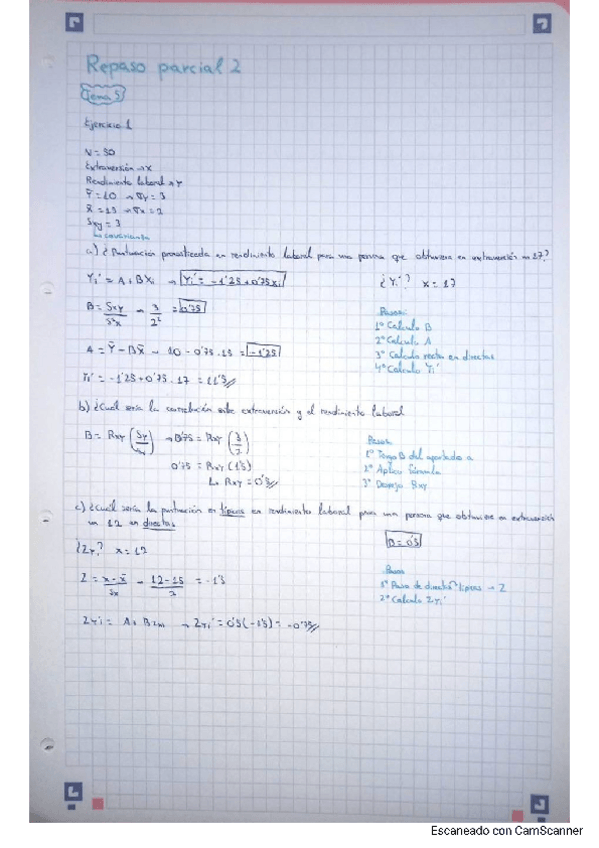 Repaso parcial 2
Tema 5
Ejercicio 1
N = 50
Extraversión → X
Rendimiento laboral → Y
Ȳ = 10 → σy = 3
X̄ = 15 → σx = 2
Sxy = 3
↳ covarianza
a) ¿Puntuación pronosticada en rendimiento laboral para una persona que obtuviera en extraversión un 17?
Yi' = A + BXi → Yi' = -1'25 + 0'75Xi ¿Yi'? x = 17
B = Sxy/S²x → 3/2² = 0'75
A = Ȳ - BX̄ → 10 - 0'75 · 15 = -1'25
Yi' = -1'25 + 0'75 · 17 = 11'5
Pasos:
1º Calculo B
2º Calculo A
3º Calculo recta en directas
4º Calculo Yi'
b) ¿Cuál sería la correlación entre extraversión y el rendimiento laboral
B = Rxy (Sy/Sx) → 0'75 = Rxy (3/2)
0'75 = Rxy (1'5)
↳ Rxy = 0'5
Pasos
1º Tengo B del apartado a
2º Aplico fórmula
3º Despejo Rxy
c) ¿Cuál sería la puntuación en típicas en rendimiento laboral para una persona que obtuviese en extraversión
un 12 en directas
B = 0'5
¿Zy? x = 12
Z = x - x̄/Sx → 12 - 15/2 = -1'5
Zyi' = 0'5(-1'5) = -0'75
Pasos
1º Paso de directas a típicas → Z
2º Calculo Zyi'
Escaneado con CamScanner